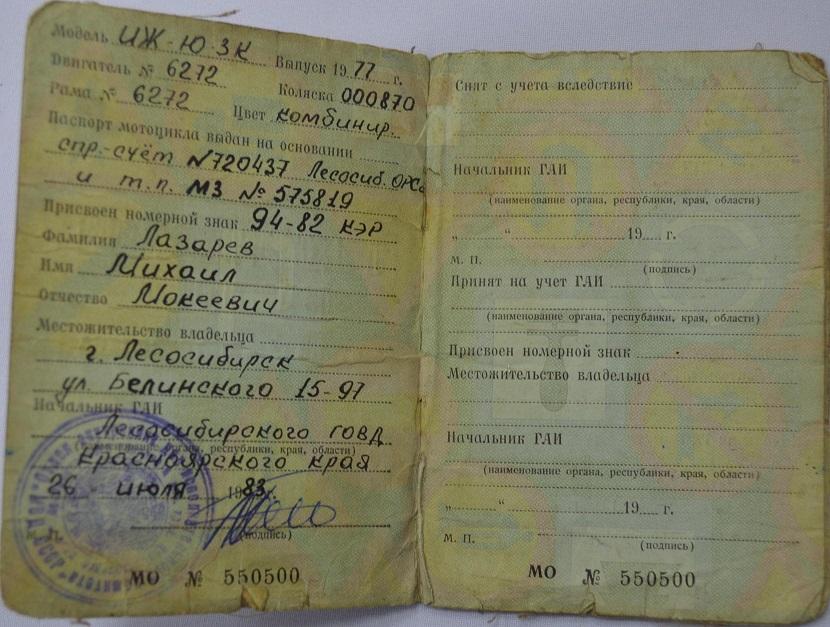 Модель ИЖ-Ю-3К Выпуск 1977 г.
Двигатель № 6272 Коляска 000870
Рама № 6272 Цвет комбинир.
Паспорт мотоцикла выдан на основании
спр.-счёт №720437 Лесосиб. ОРСа
и т.п. МЗ № 575819
Присвоен номерной знак 94-82 КЭР
Фамилия Лазарев
Имя Михаил
Отчество Мокеевич
Местожительство владельца
г. Лесосибирск
ул. Белинского 15-97
Начальник ГАИ
Лесосибирского ГОВД
(наименование органа, республики, края, области)
Красноярского края
26 июля 1983 г.
М. П. (подпись)
МО № 550500
Снят с учета вследствие
Начальник ГАИ
(наименование органа, республики, края, области)
„ “ 19 г.
М. П. (подпись)
Принят на учет ГАИ
(наименование органа, республики, края, области)
Присвоен номерной знак
Местожительство владельца
Начальник ГАИ
(наименование органа, республики, края, области)
„ “ 19 г.
М. П. (подпись)
МО № 550500